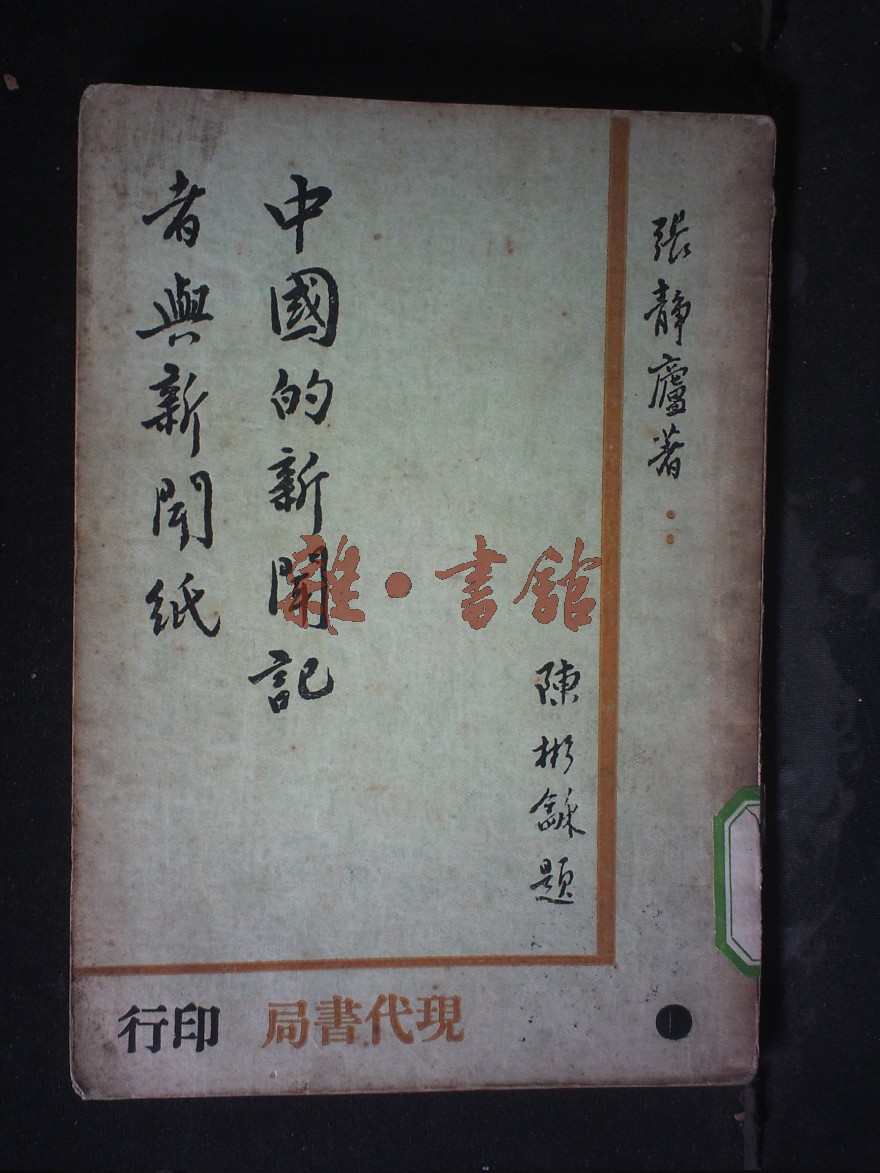 張靜廬著
中國的新聞記
者與新聞紙
陳彬龢題
雜·書館
現代書局 印行